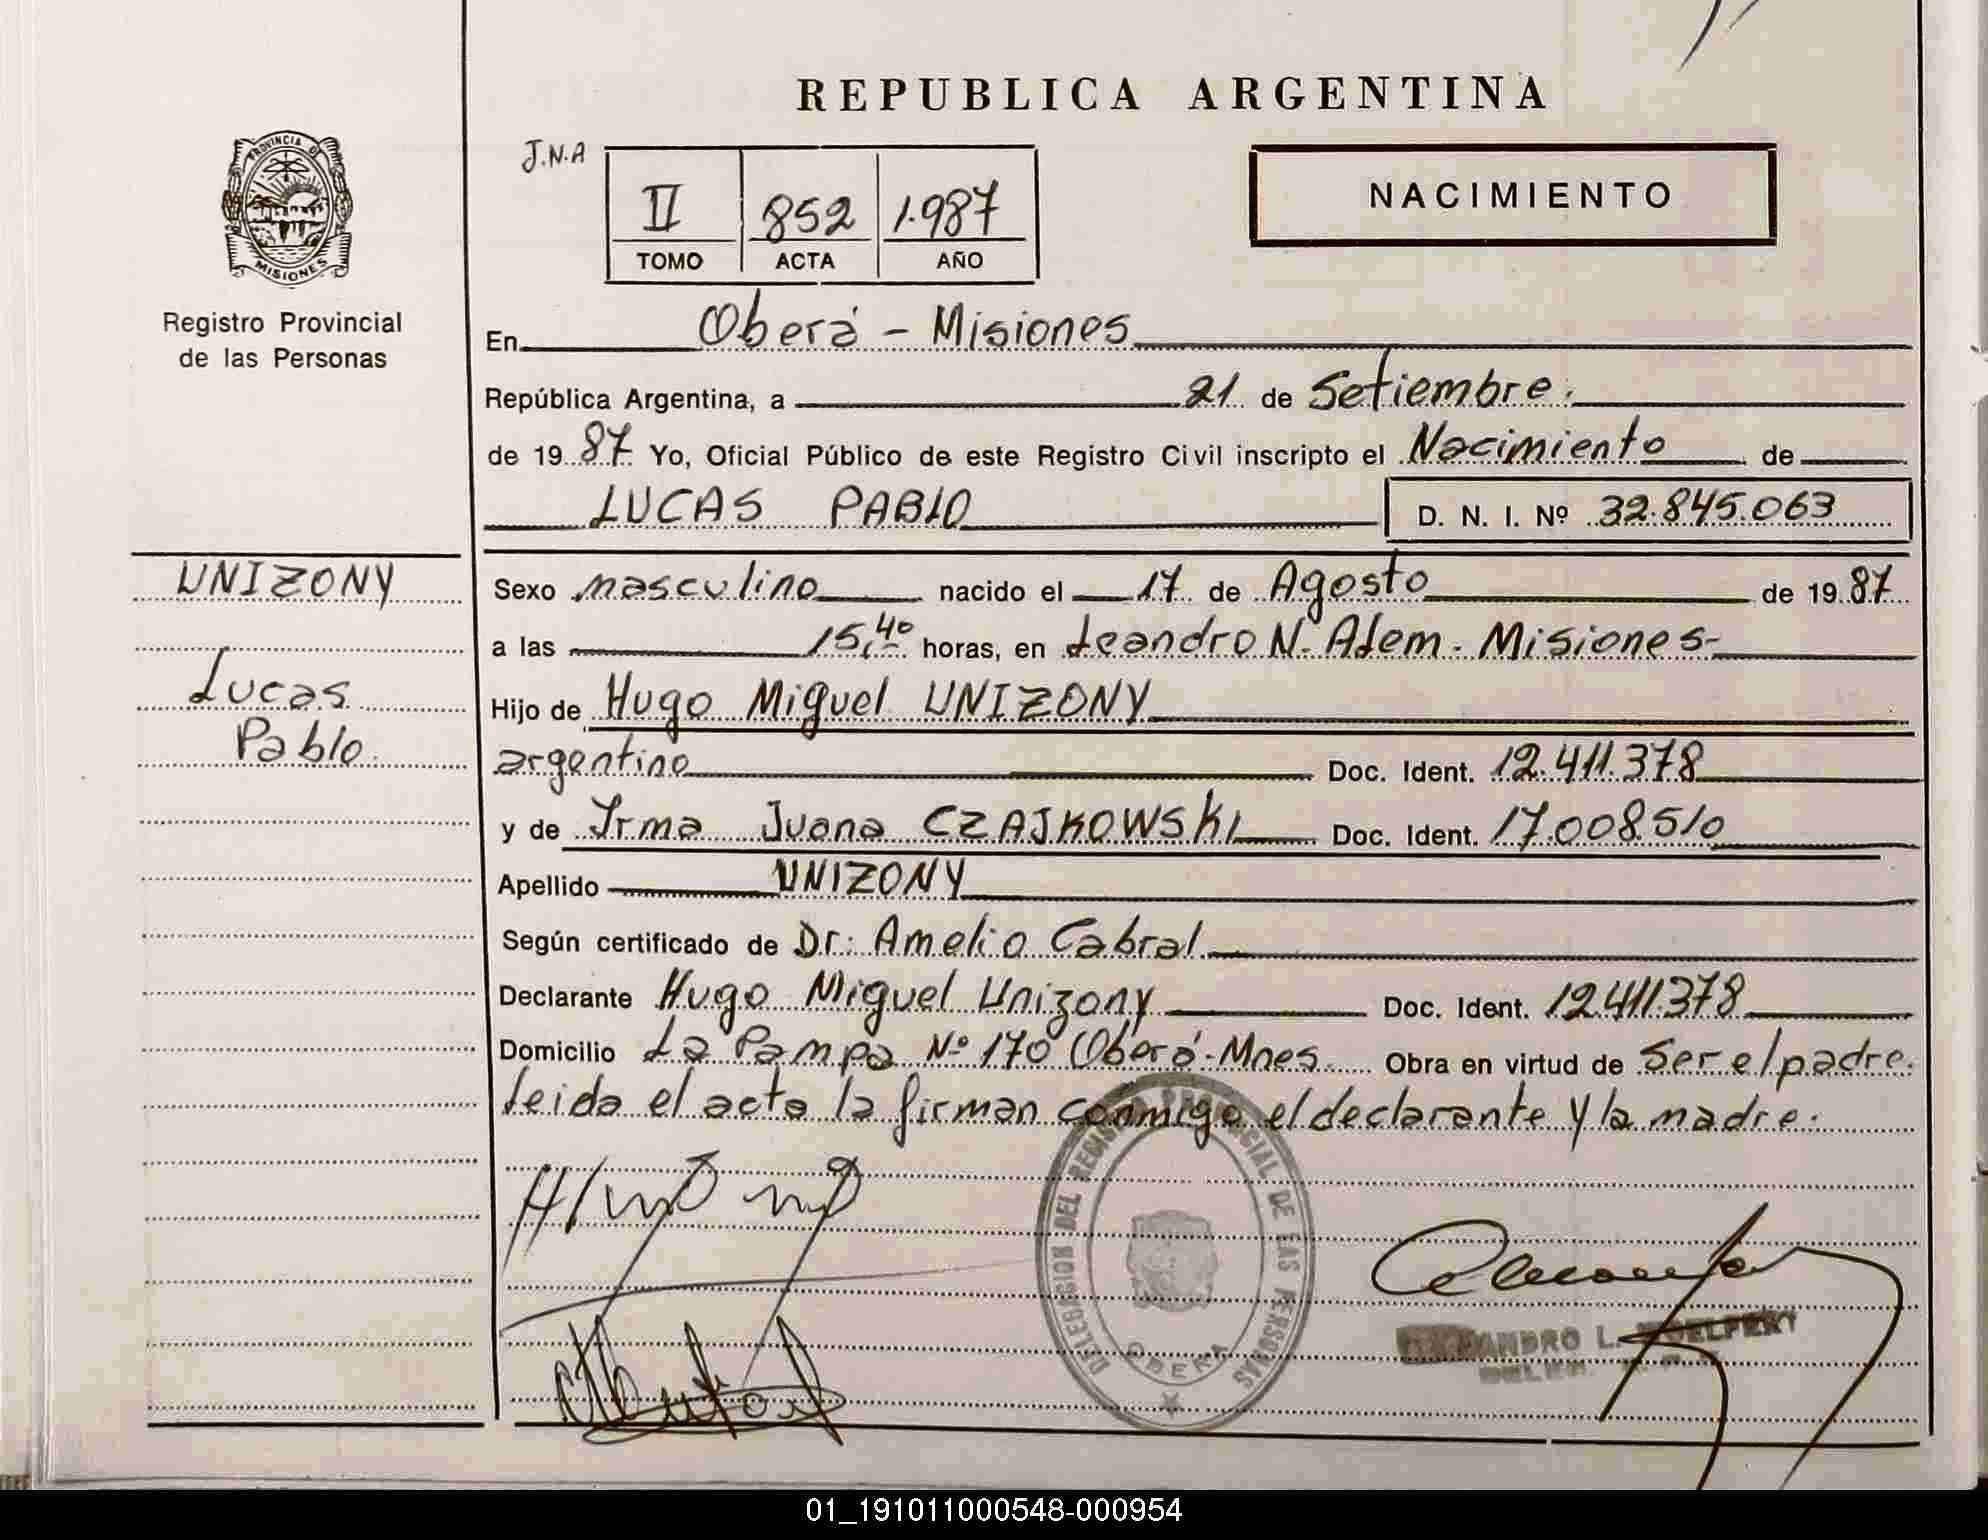 REPUBLICA ARGENTINA
J.N.A
II 852 1.987
TOMO ACTA AÑO
NACIMIENTO
PROVINCIA DE
MISIONES
Registro Provincial
de las Personas
En Oberá - Misiones
República Argentina, a 21 de Setiembre.
de 1987 Yo, Oficial Público de este Registro Civil inscripto el Nacimiento de
LUCAS PABLO D. N. I. Nº 32.845.063
UNIZONY
Lucas
Pablo.
Sexo masculino nacido el 17 de Agosto de 1987
a las 15,40 horas, en Leandro N. Alem. Misiones-
Hijo de Hugo Miguel UNIZONY
argentino Doc. Ident. 12.411.378
y de Irma Juana CZAJKOWSKI Doc. Ident. 17.008.510
Apellido UNIZONY
Según certificado de Dr: Amelio Cabral
Declarante Hugo Miguel Unizony Doc. Ident. 12.411.378
Domicilio La Pampa Nº 170 Oberá-Mnes. Obra en virtud de Ser el padre.
Leida el acta la firman conmigo el declarante y la madre.
DELEGACION DEL REGISTRO PROVINCIAL DE LAS PERSONAS
OBERA
01_191011000548-000954